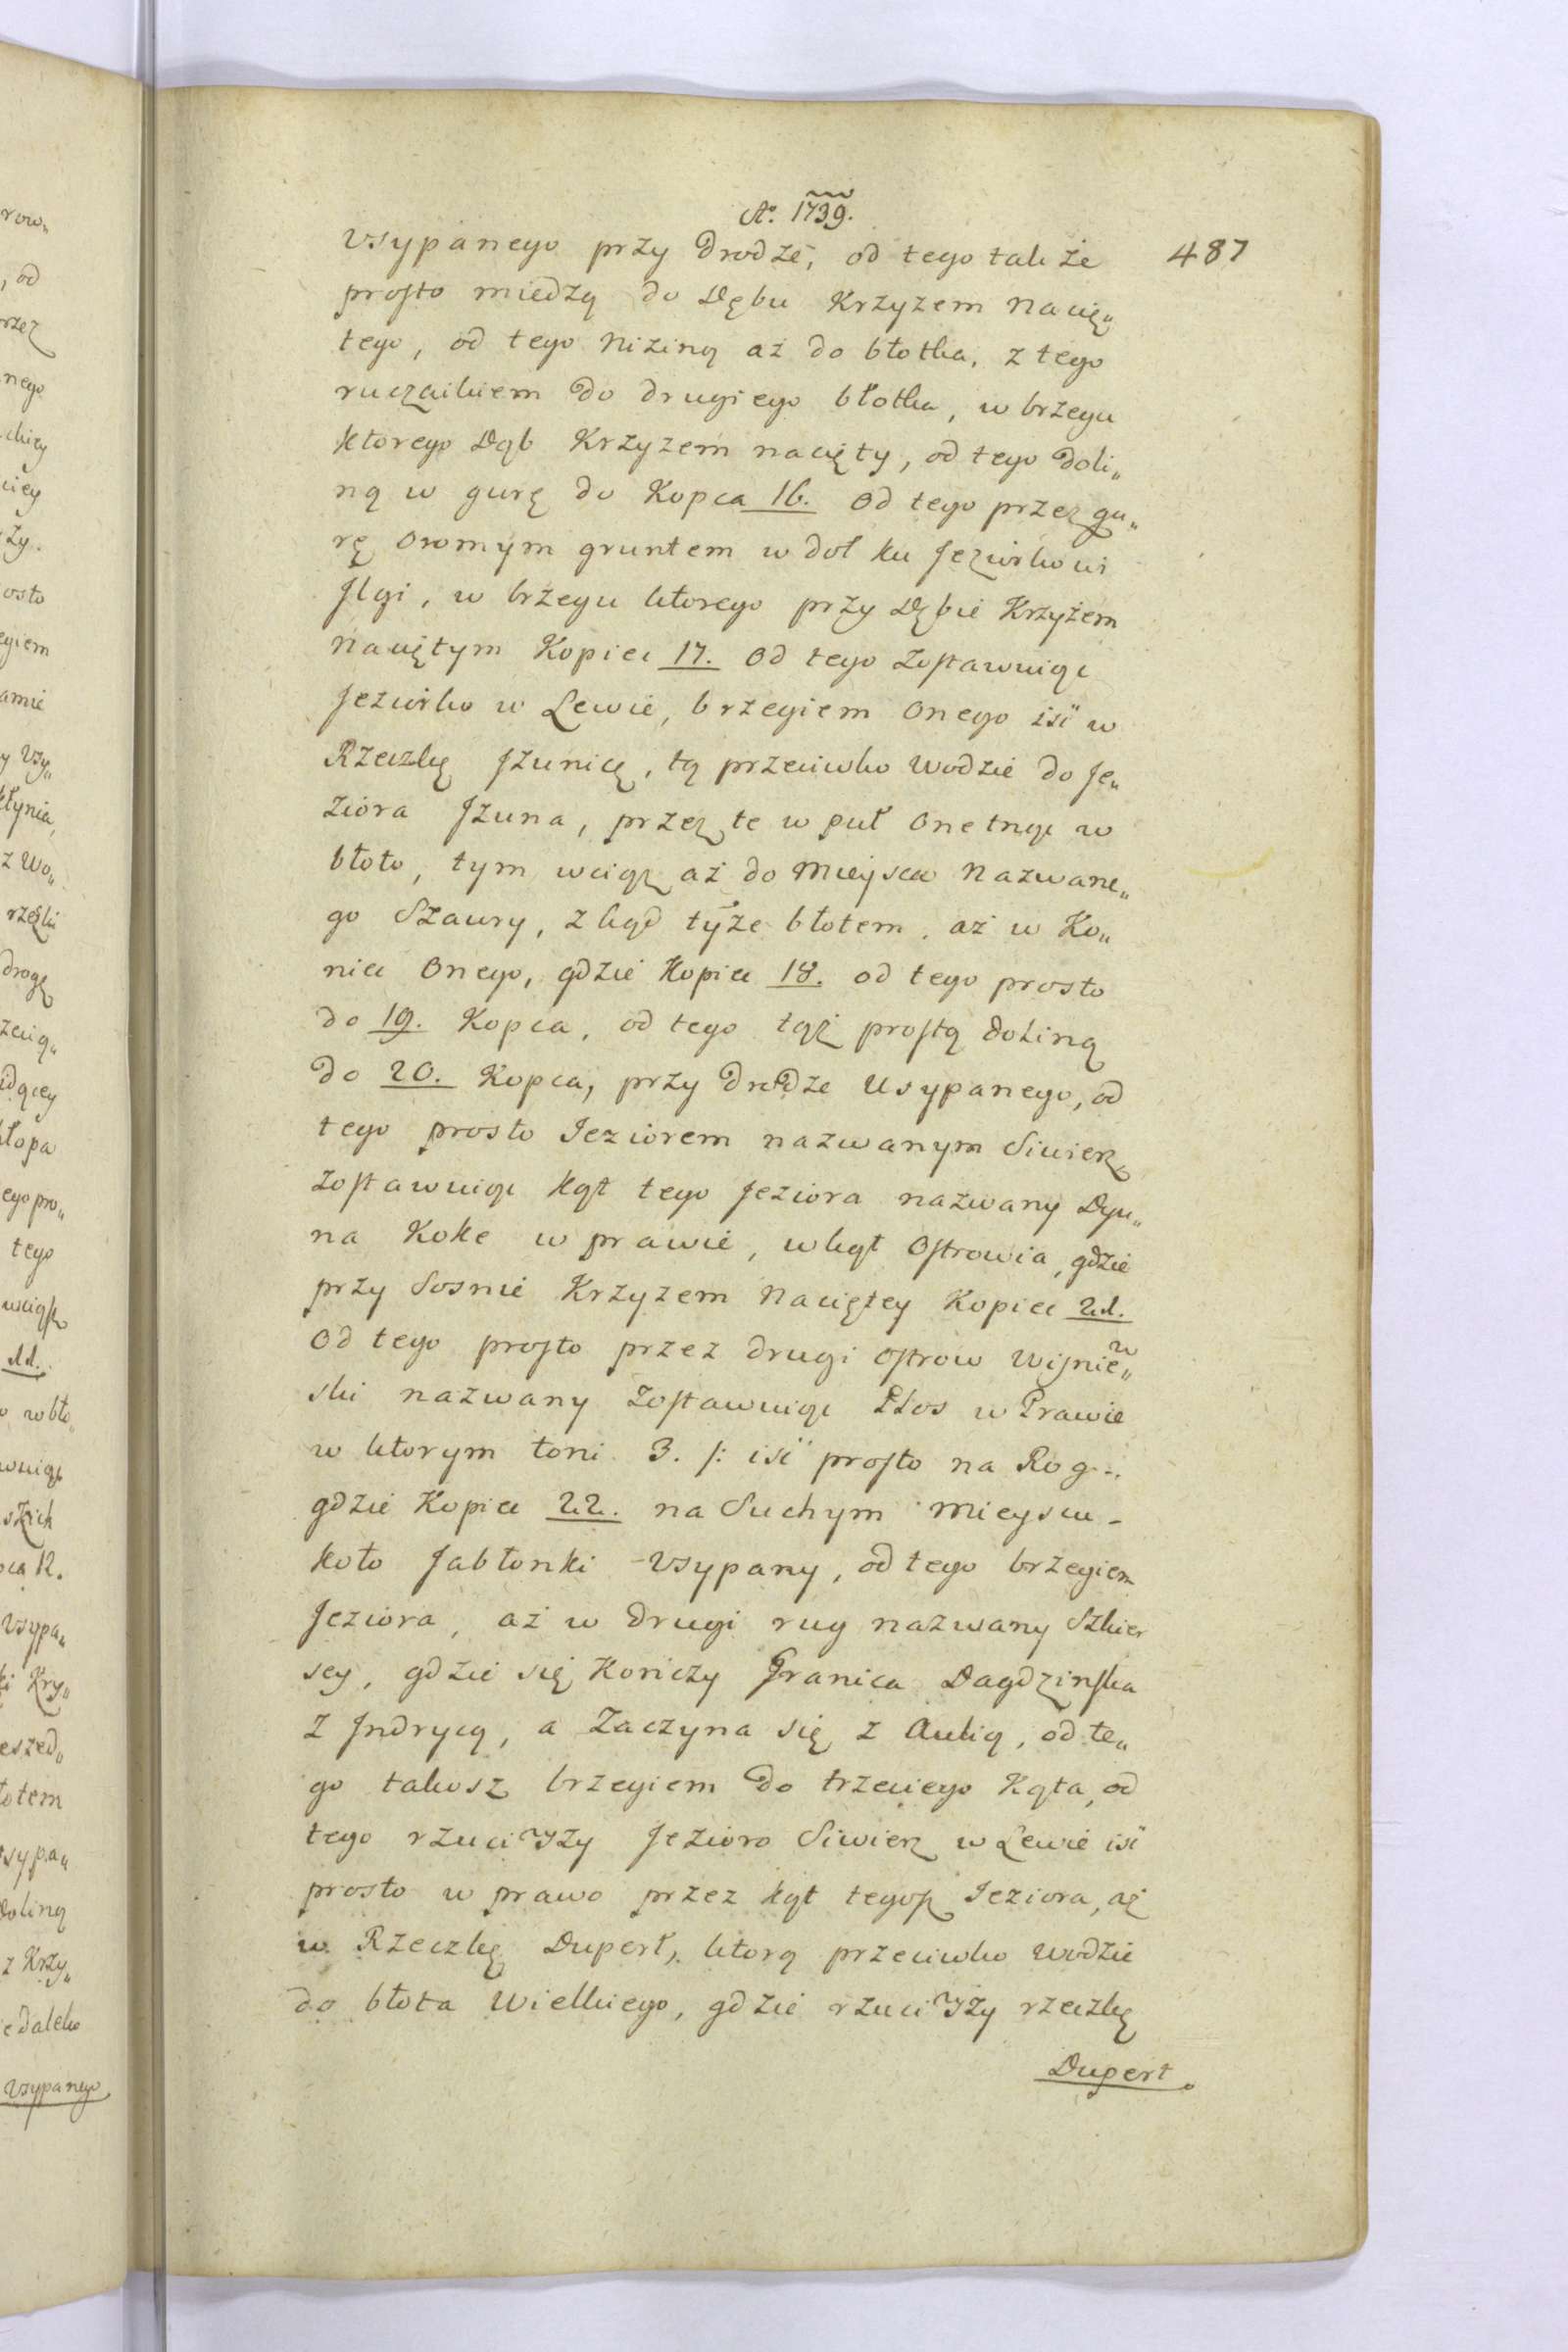 Aō. 1739.
487
Vsypanego przy Drodze, od tego także
prosto miedzą do Dębu Krzyzem nacię„
tego, od tego Niziną aż do błotka, z tego
ruczaikiem do drugiego błotka, w brzegu
ktorego Dąb Krzyzem nacięty, od tego Doli„
ną w gurę do Kopca 16. Od tego przez gu„
rę Oromym gruntem w doł ku Jeziorkowi
Jlgi, w brzegu ktorego przy Dębie Krzyżem
naciętym Kopiec 17. Od tego Zostawuiąc
Jeziorko w Lewie, brzegiem Onego iść w
Rzeczkę Jzunicę, tą przeciwko Wodzie do Je„
ziora Jzuna, przez te w puł Onetnąc w
błoto, tym wciąż aż do Mieysca Nazwane„
go Szaury, zkąd tyże błotem, aż w Ko„
niec Onego, gdzie Kopiec 18. od tego prosto
do 19. Kopca, od tego tąż prostą Doliną
Do 20. Kopca, przy Drodze Usypanego, od
tego prosto Jeziorem nazwanym Siwierz
zostawuiąc kąt tego Jeziora nazwany Dyu„
na Koke w prawie, wkąt Ostrowia, gdzie
przy Sosnie Krzyzem Naciętey Kopiec 21.
Od tego prosto przez drugi Ostrow Wisniew„
ski nazwany Zostawuiąc Płos w Prawie
w ktorym toni 3. /: iść prosto na Rog..
gdzie Kopiec 22. na Suchym Mieyscu –
koło Jabłonki Vsypany, od tego brzegiem
Jeziora, aż w Drugi rug nazwany Szkier
sey, gdzie się Kończy Granica Dagdzinska
z Jndrycą, a Zaczyna się z Aulią, od te„
go takosz brzegiem Do trzeciego Kąta, od
tego rzuciwszy Jezioro Siwierz w Lewie iść
prosto w prawo przez kąt tegoż Jeziora, aż
w Rzeczkę Dupert, ktorą przeciwko Wodzie
do błota Wielkiego, gdzie rzuciwszy rzeczkę
Dupert
row„
, od
rzez
nego
uiey
ży.
osto
egiem
amie
y Vsy„
z Wo„
drogę
idącey
łopa
ego pro„
tego
11.
w bło„
szich
12.
Vsypa„
i Kry„
eszed„
łotem
sypa„
doliną
z Krzy„
e daleko
Vsypanego